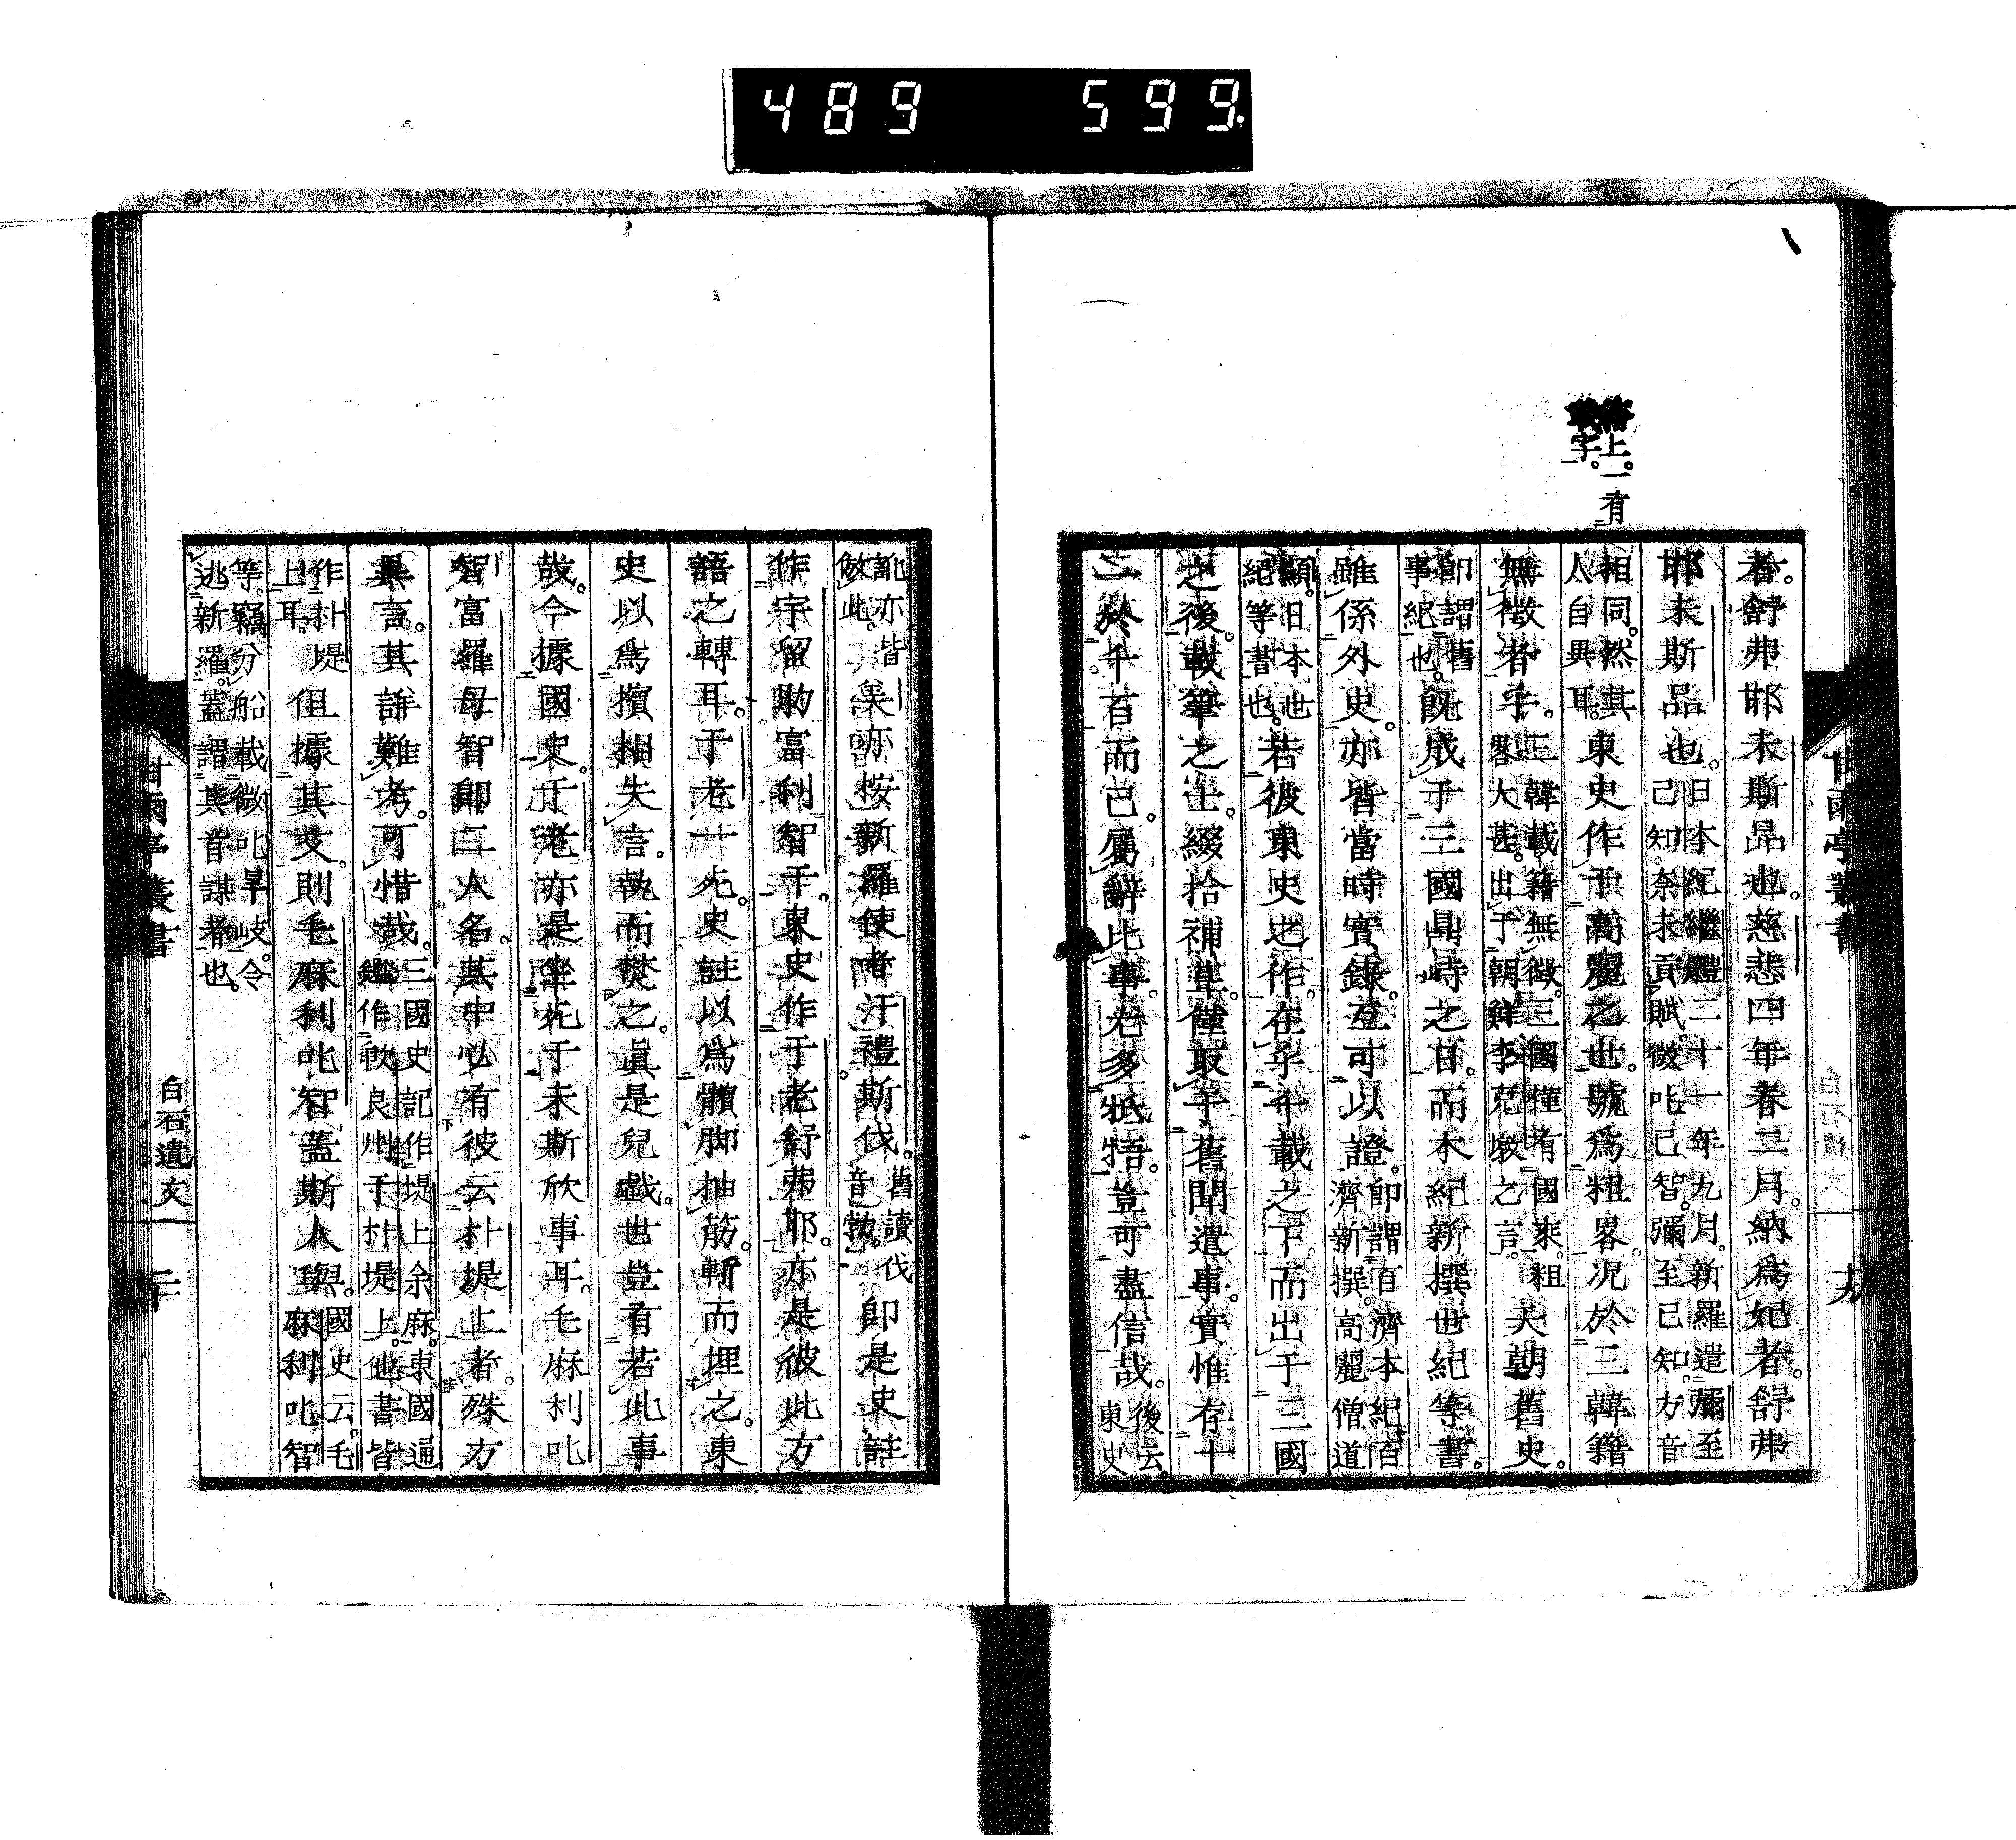 489 599.
略上一有
字。
者。舒弗邯未斯品也。慈悲四年春二月。納爲妃者。舒弗
邯未斯品也。日本紀繼體二十一年九月。新羅遣彌至
己知奈未貢賦。微叱己智。彌至己知。方音
相同。然其
人自異耳。東史作于高麗之世。號爲粗畧。況於三韓籍
無徵者乎。三韓載籍無徵。三國僅有國乘。粗
畧大甚。出于朝鮮李克墩之言。天朝舊史。
卽謂舊
事紀也。旣成于三國鼎峙之日。而本紀新撰世紀等書。
雖係外史。亦皆當時實錄。互可以證。卽謂百濟本紀百
濟新撰。高麗僧道
顯。日本世
紀等書也。若彼東史之作。在乎千載之下。而出于三國
之後。載筆之士。綴拾補葺。僅取乎舊聞遺事。實惟存十
一於千百而已。屬辭比事。尤多牴牾。豈可盡信哉。後云。
東史
甘雨亭叢書
九
訛亦皆
倣此。美亦按新羅使者汙禮斯伐。舊讀伐
音勃。卽是史註
作宇留助富利智干。東史作于老舒弗邯。亦是彼此方
語之轉耳。于老之死。史註以爲髕脚抽筋。斬而埋之。東
史以爲擯相失言。執而焚之。眞是兒戲。世豈有若此事
哉。今據國史。于老亦是坐死于未斯欣事耳。毛麻利叱
智富羅母智卽二人名。其中必有彼云朴堤上者。殊方
異言。其詳難考。可惜哉。三國史記作堤上余麻。東國通
鑑作歃良州干朴堤上。他書皆
作朴堤
上耳。但據其文。則毛麻利叱智蓋斯人與。國史云。毛
麻利叱智
等。竊分船載微叱旱岐。令
逃新羅。蓋謂其首謀者也。
甘雨亭叢書
白石遺文
二十